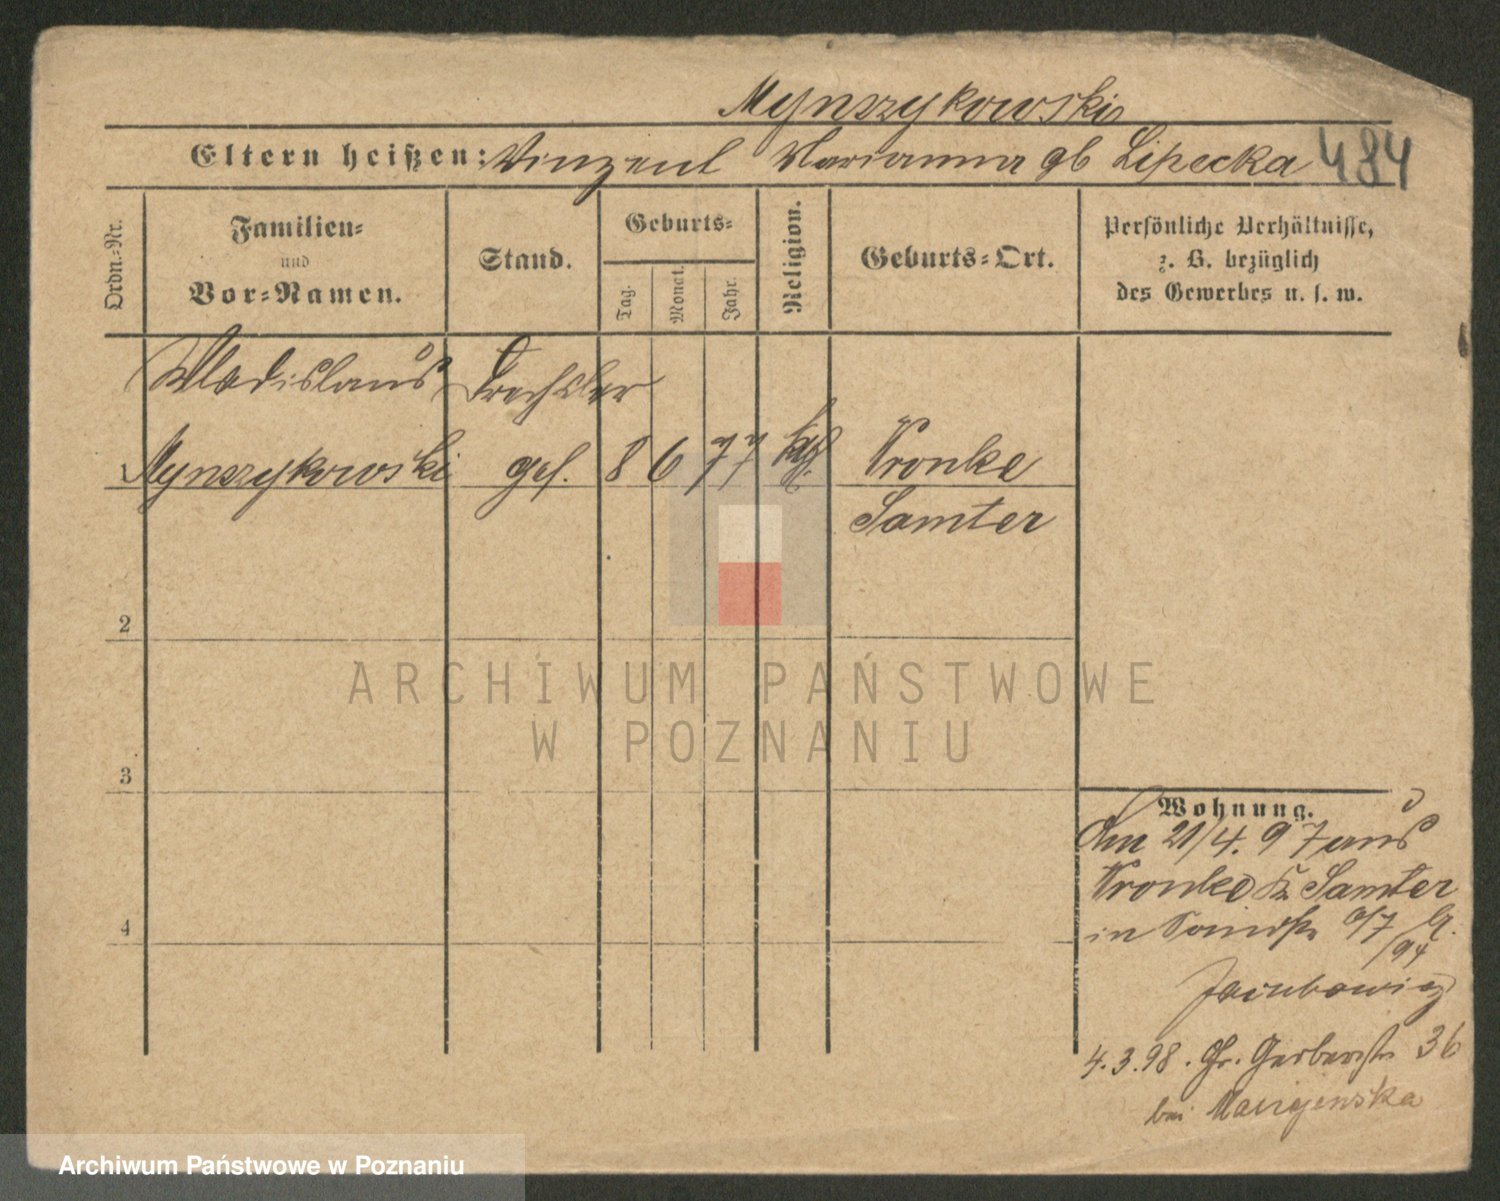 Mynszykowski
Eltern heißen: Vinzent Marianna gb Lipecka 484
Ordn.-Nr.
Familien-
und
Vor-Namen.
Stand.
Geburts-
Tag.
Monat.
Jahr.
Religion.
Geburts-Ort.
Persönliche Verhältnisse,
z. B. bezüglich
des Gewerbes u. s. w.
Wladislaus Drechsler
1 Mynszykowski ges. 8 6 77 kth. Wronke
Samter
2
3
4
ARCHIWUM PAŃSTWOWE
W POZNANIU
Wohnung.
Am 21/4. 97 aus
Wronke Kr Samter
in
4.3.98. Gr. Gerberstr 36
bei
Archiwum Państwowe w Poznaniu